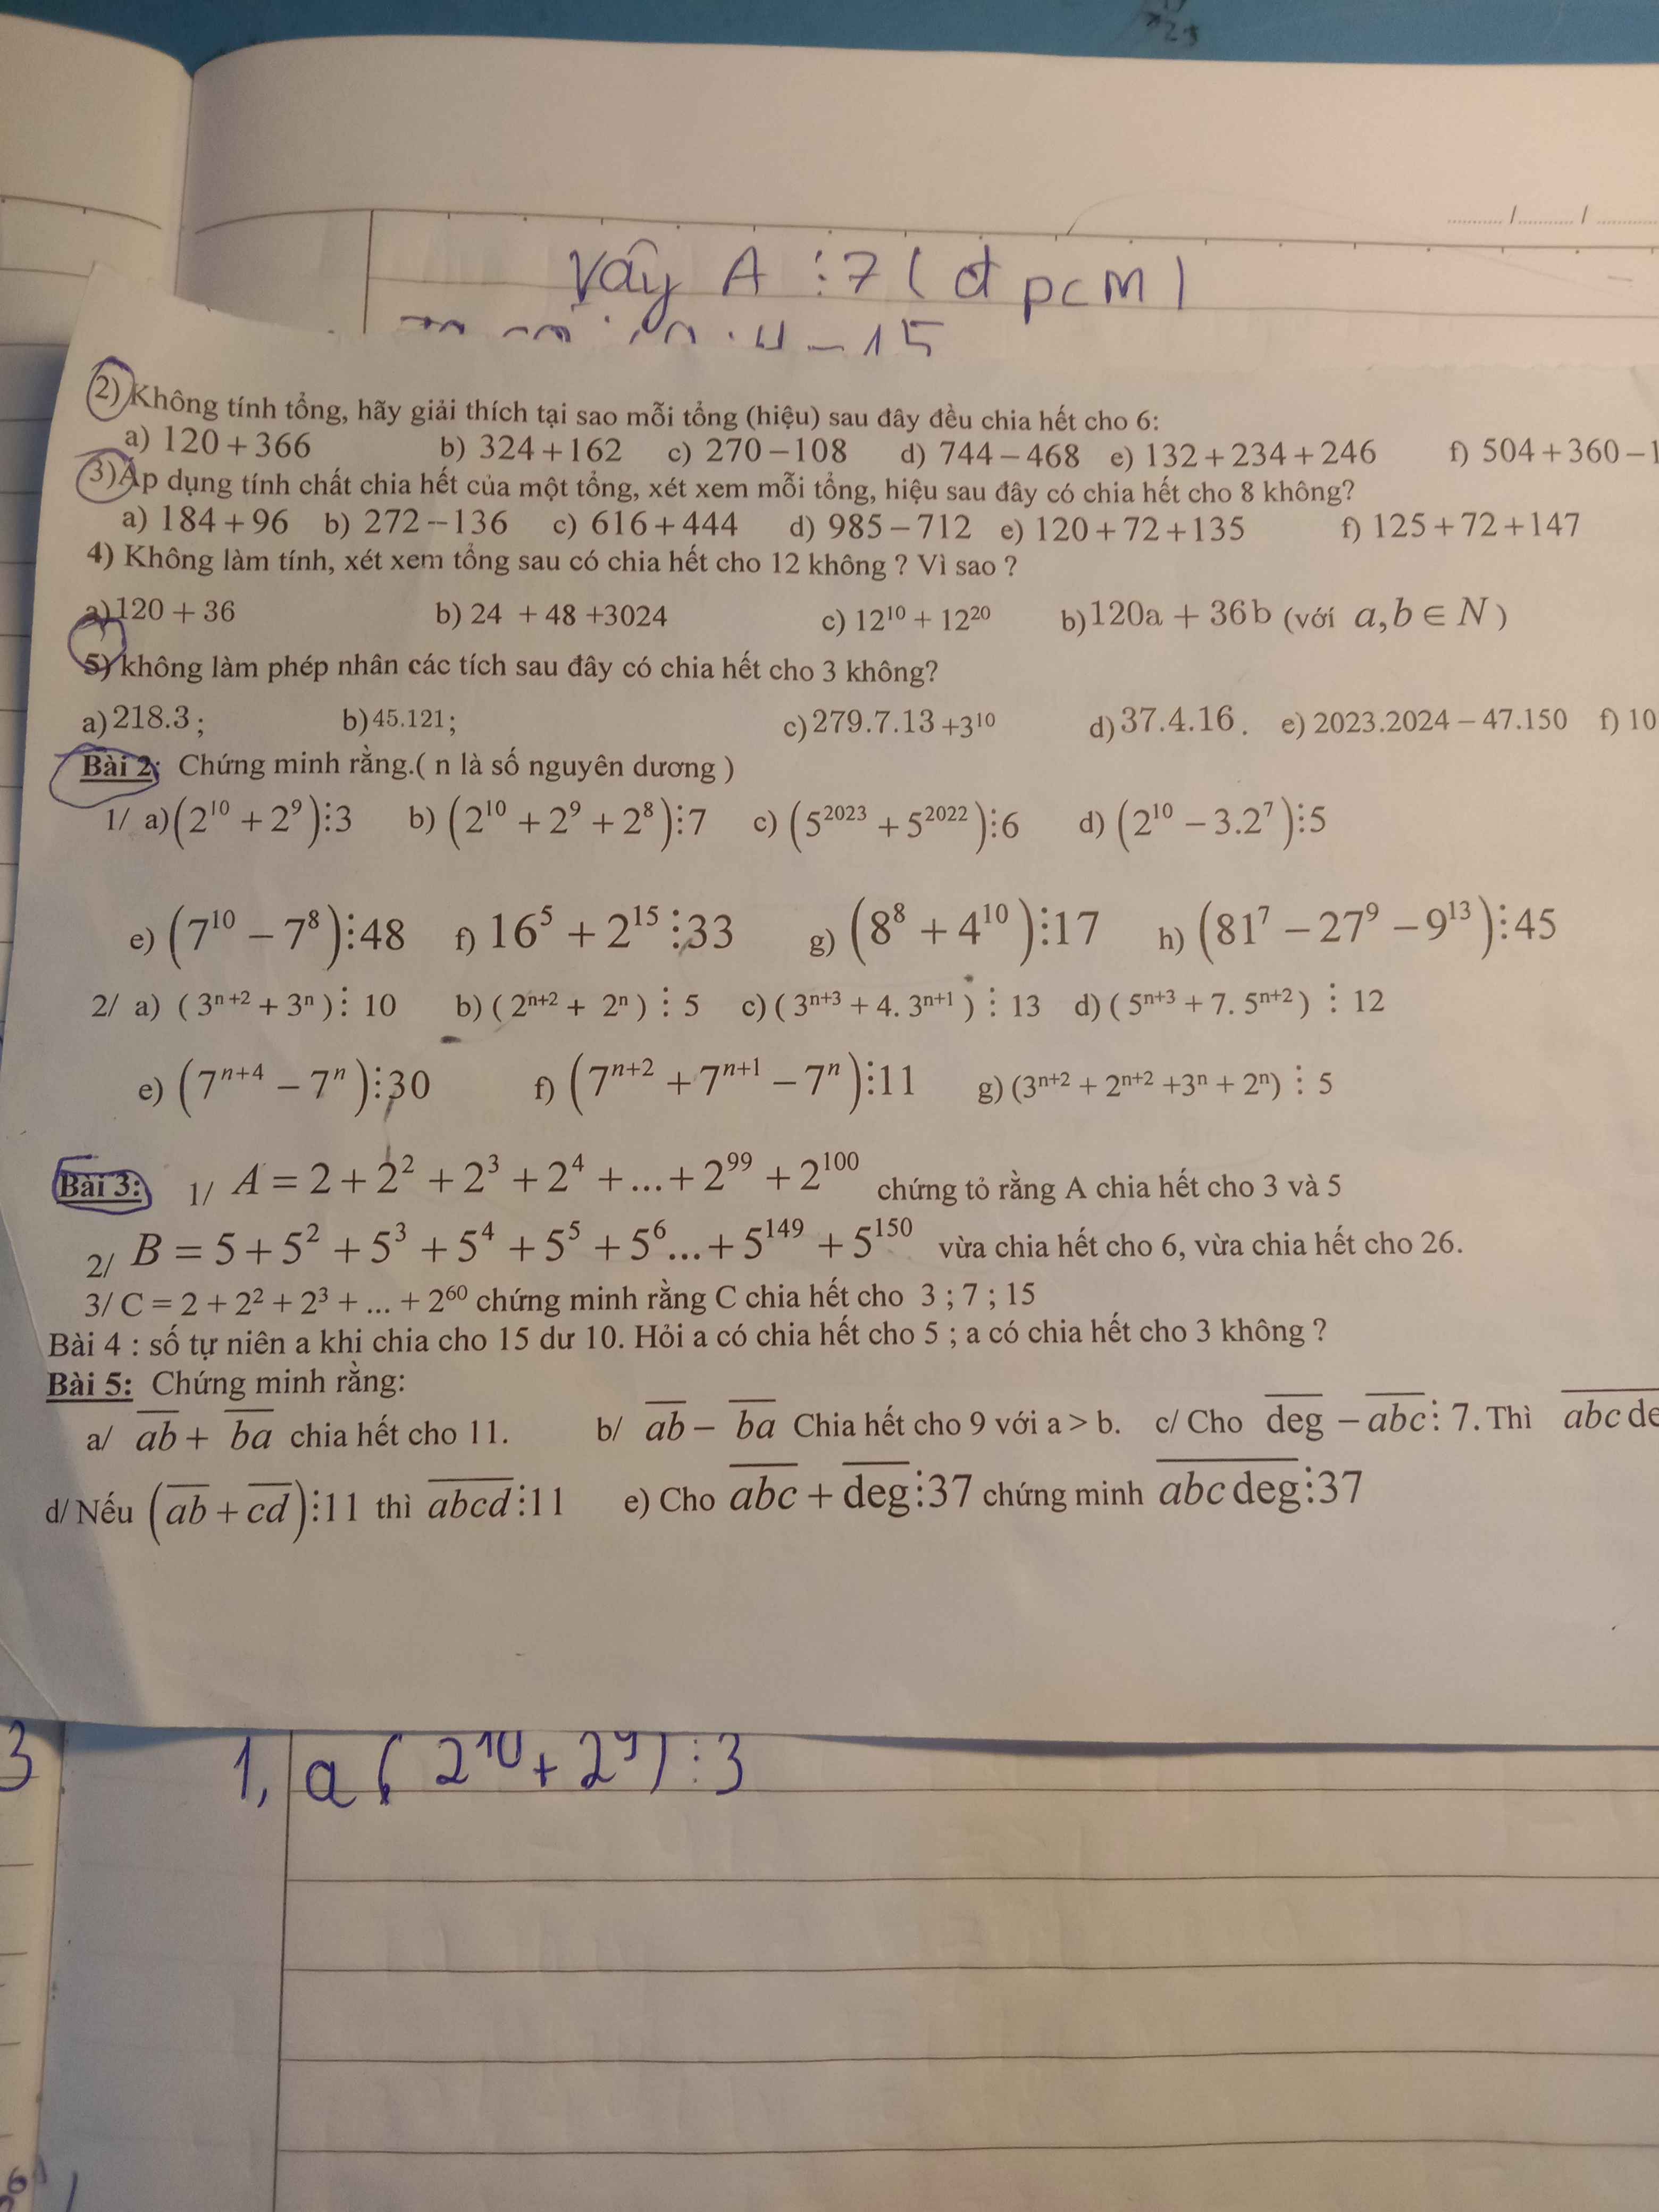 Vậy A ⋮ 7 ( đpcm )
2) Không tính tổng, hãy giải thích tại sao mỗi tổng (hiệu) sau đây đều chia hết cho 6:
a) 120 + 366 b) 324 + 162 c) 270 – 108 d) 744 – 468 e) 132 + 234 + 246 f) 504 + 360 – 1
3) Áp dụng tính chất chia hết của một tổng, xét xem mỗi tổng, hiệu sau đây có chia hết cho 8 không?
a) 184 + 96 b) 272 – 136 c) 616 + 444 d) 985 – 712 e) 120 + 72 + 135 f) 125 + 72 + 147
4) Không làm tính, xét xem tổng sau có chia hết cho 12 không ? Vì sao ?
a) 120 + 36 b) 24 + 48 +3024 c) 12¹⁰ + 12²⁰ b) 120a + 36b (với a,b ∈ N )
5) không làm phép nhân các tích sau đây có chia hết cho 3 không?
a) 218.3 ; b) 45.121; c) 279.7.13 +3¹⁰ d) 37.4.16 . e) 2023.2024 – 47.150 f) 10
Bài 2: Chứng minh rằng.( n là số nguyên dương )
1/ a) (2¹⁰ + 2⁹)⋮3 b) (2¹⁰ + 2⁹ + 2⁸)⋮7 c) (5²⁰²³ + 5²⁰²²)⋮6 d) (2¹⁰ – 3.2⁷)⋮5
e) (7¹⁰ – 7⁸)⋮48 f) 16⁵ + 2¹⁵ ⋮33 g) (8⁸ + 4¹⁰)⋮17 h) (81⁷ – 27⁹ – 9¹³)⋮45
2/ a) ( 3ⁿ⁺² + 3ⁿ )⋮ 10 b) ( 2ⁿ⁺² + 2ⁿ ) ⋮ 5 c) ( 3ⁿ⁺³ + 4. 3ⁿ⁺¹ ) ⋮ 13 d) ( 5ⁿ⁺³ + 7. 5ⁿ⁺² ) ⋮ 12
e) (7ⁿ⁺⁴ – 7ⁿ)⋮30 f) (7ⁿ⁺² + 7ⁿ⁺¹ – 7ⁿ)⋮11 g) (3ⁿ⁺² + 2ⁿ⁺² +3ⁿ + 2ⁿ) ⋮ 5
Bài 3: 1/ A = 2 + 2² + 2³ + 2⁴ + ... + 2⁹⁹ + 2¹⁰⁰ chứng tỏ rằng A chia hết cho 3 và 5
2/ B = 5 + 5² + 5³ + 5⁴ + 5⁵ + 5⁶... + 5¹⁴⁹ + 5¹⁵⁰ vừa chia hết cho 6, vừa chia hết cho 26.
3/ C = 2 + 2² + 2³ + ... + 2⁶⁰ chứng minh rằng C chia hết cho 3 ; 7 ; 15
Bài 4 : số tự niên a khi chia cho 15 dư 10. Hỏi a có chia hết cho 5 ; a có chia hết cho 3 không ?
Bài 5: Chứng minh rằng:
a/ a̅b̅ + b̅a̅ chia hết cho 11. b/ a̅b̅ – b̅a̅ Chia hết cho 9 với a > b. c/ Cho d̅e̅g̅ – a̅b̅c̅⋮ 7. Thì a̅b̅c̅d̅e̅
d/ Nếu (a̅b̅ + c̅d̅)⋮11 thì a̅b̅c̅d̅⋮11 e) Cho a̅b̅c̅ + d̅e̅g̅⋮37 chứng minh a̅b̅c̅d̅e̅g̅⋮37
1, a ( 2¹⁰ + 2⁹ ) ⋮ 3